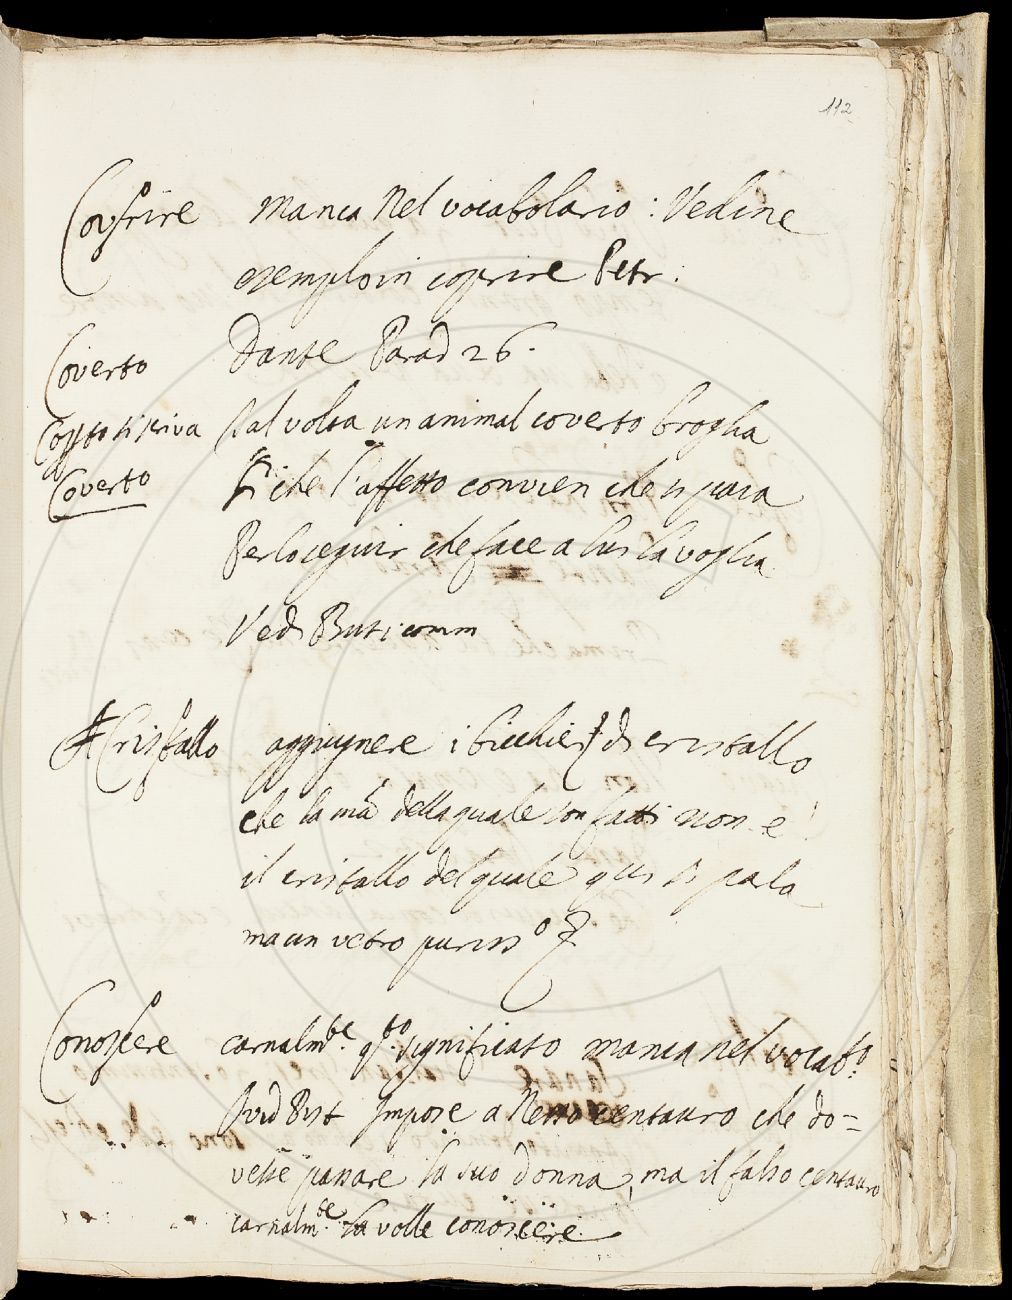 112
Coprire manca nel vocabolario : Vedine
esempio in coprire Petr.
Coverto Dante Parad 26.
si scriva Tal volta un animal coverto broglia
Coverto Si che l'affetto convien che si paia
Per lo seguir che face a lui la voglia.
Vedi Buti comm
Cristallo aggiugnere i bicchieri di cristallo
che la mã della quale son fatti non è
il cristallo del quale qui si parla
ma un vetro puriss.o
Conoscere carnalm.te q.to significato manca nel vocab.o
Ovid Pist Impose a Nesso centauro che do=
vesse passare la suo donna, ma il falso centauro
carnalm.te la volle conoscere